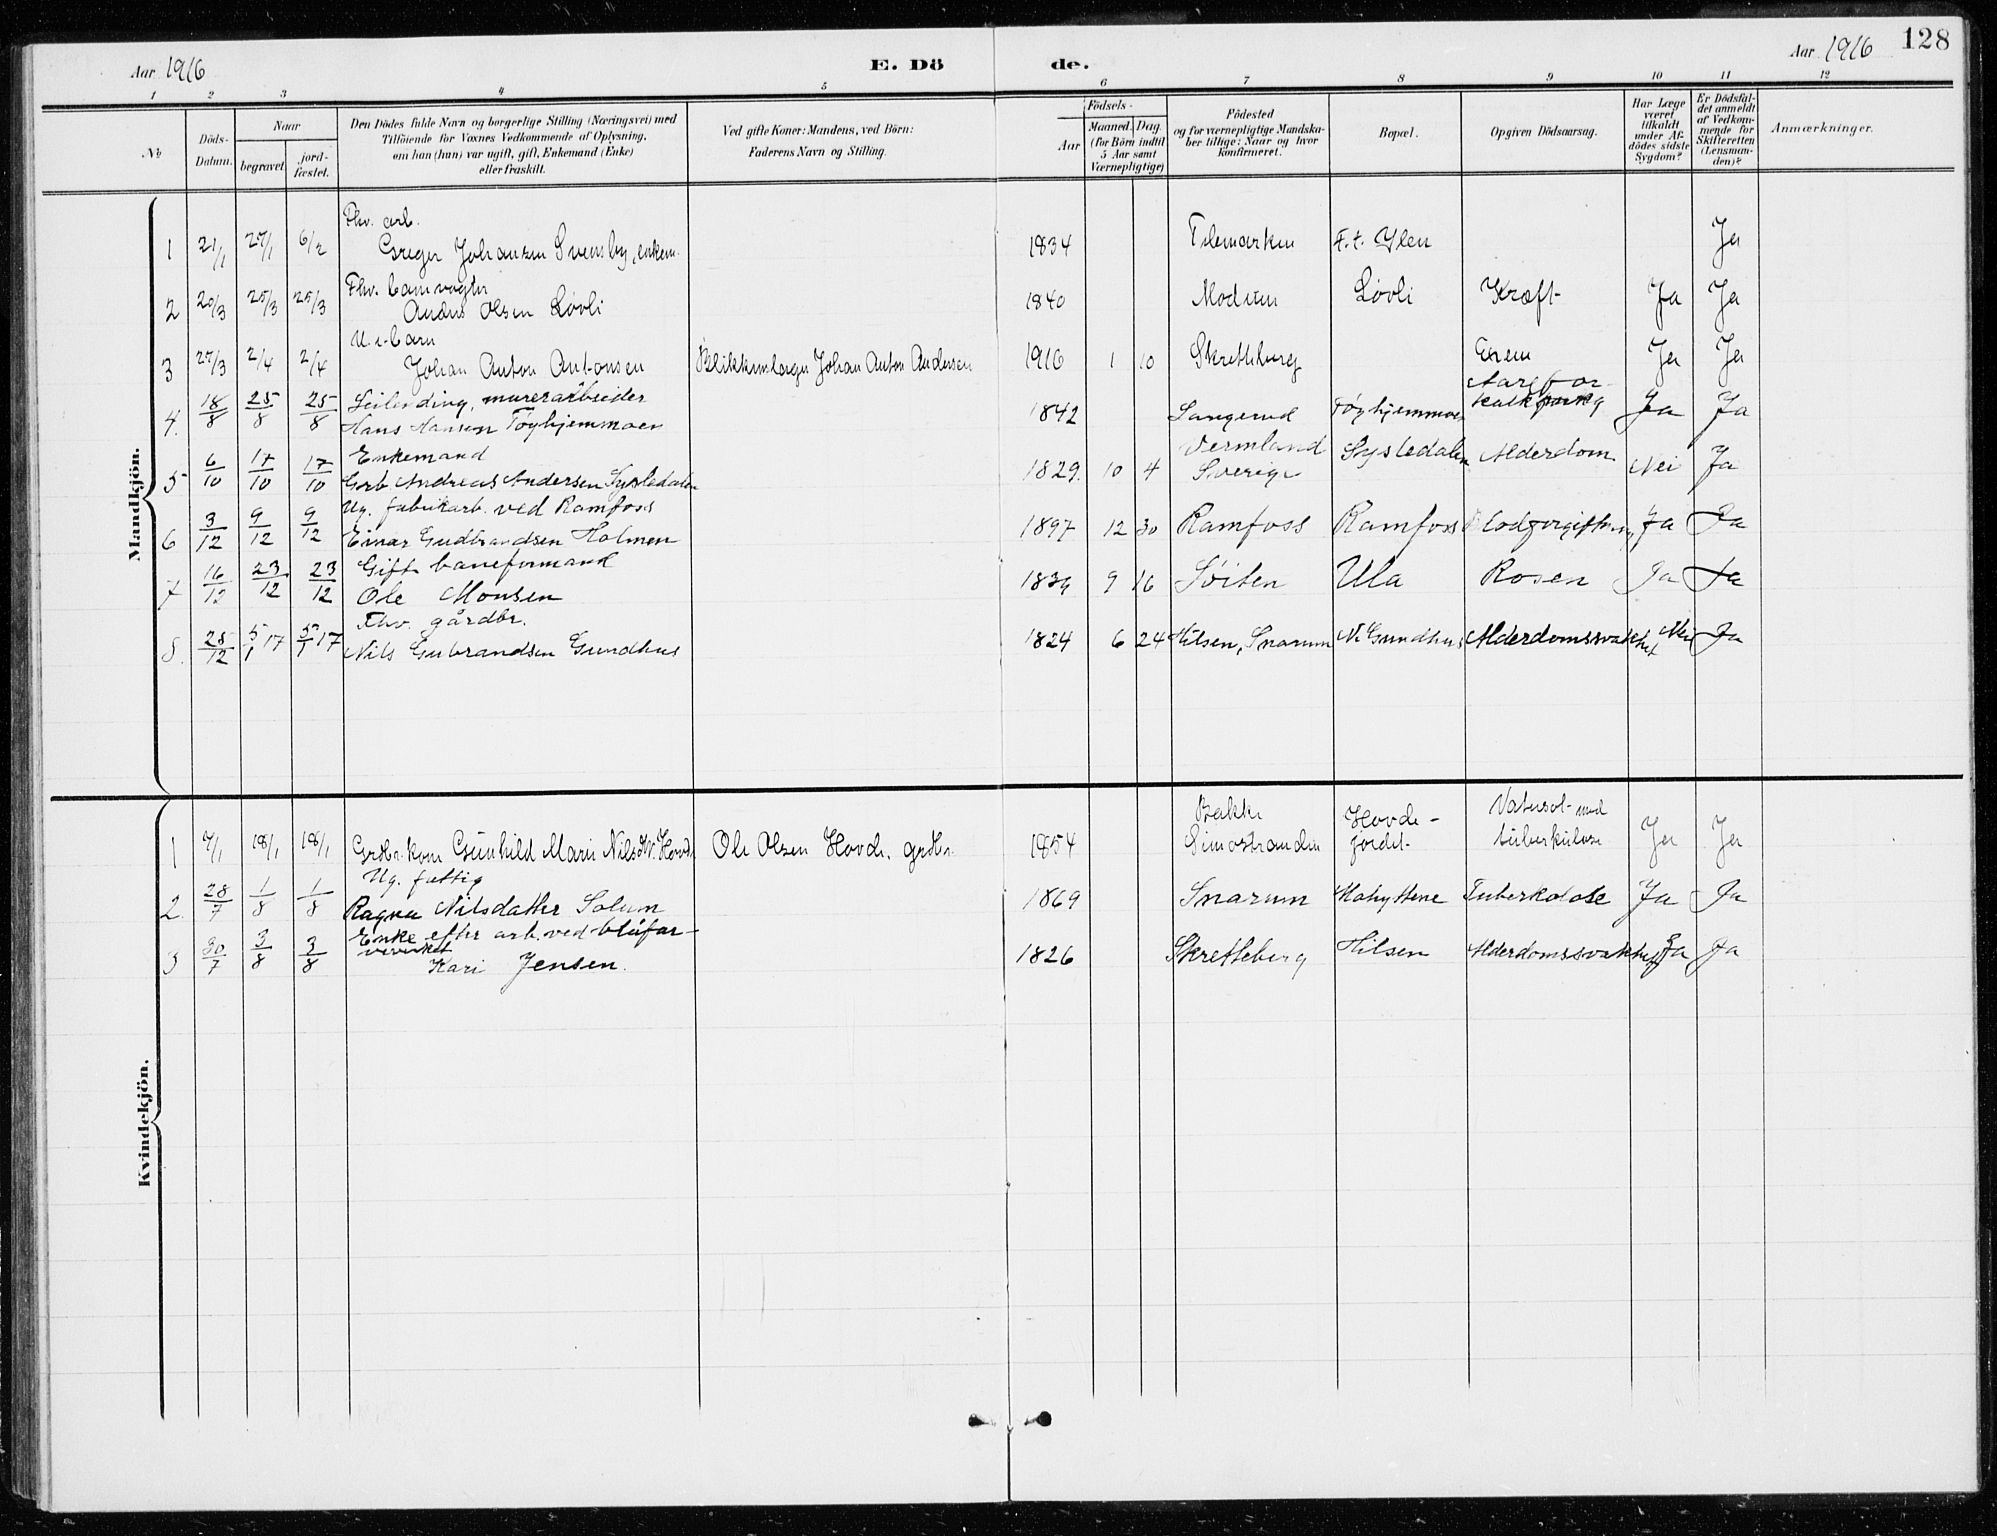 128
Aar 1916
E. Dö de.
Aar 1916
1 2 3 4 5 6 7 8 9 10 11 12
№
Döds-
Datum.
Naar
begravet.
jord-
fæstet.
Den Dödes fulde Navn og borgerlige Stilling (Næringsvei) med
Tilföiende for Voxnes Vedkommende af Oplysning,
om han (hun) var ugift, gift, Enkemand (Enke)
eller fraskilt.
Ved gifte Koner: Mandens, ved Börn:
Faderens Navn og Stilling.
Födsels-
Aar
Maaned. Dag.
(for Börn indtil
5 Aar samt
Værnepligtige)
Födested
og for værnepligtige Mandska-
ber tillige: Naar og hvor
konfirmeret.
Bopæl.
Opgiven Dödsaarsag.
Har Læge
været
tilkaldt
under Af-
dödes sidste
Sygdom?
Er Dödsfal-
det anmeldt
af Vedkom-
mende for
Skifteretten
(Lensman-
den)?
Anmærkninger.
Mandkjön.
Fhv. arb.
1 21/1 27/1 6/2 Greger Johansen Svensby, enkem. 1834 Telemarken F.t. Ylen Ja
Fhv. banevogter
2 20/3 25/3 25/3 Anders Olsen Løvli 1840 Modum Løvli Kræft Ja Ja
U.e. barn
3 27/3 2/4 2/4 Johan Anton Antonsen Blikkenslager Johan Anton Andersen 1916 1 10 Skretteberg Exem Ja Ja
4. 18/8 25/8 25/8 murerarbeider 1842 Aarefor-
Hans Hansen Tøghjemmoen Langerud Tøghjemmoen kalkning Ja Ja
Enkemand Vermland
5 6/10 17/10 17/10 Andreas Andersen Sysledalen 1829. 10 4 Sverige Sysledalen Alderdom Nei Ja
Ug. fabrikarb. ved Ramfoss
6 3/12 9/12 9/12 Einar Gudbrandsen Holmen 1897 12 30 Ramfoss Ramfoss Blodforgiftning Ja Ja
Gift baneformand
7 16/12 23/12 23/12 Ole Monsen 9 16 Ula Rosen Ja Ja
Fhv. gårdbr.
8. 25/12 5/1 17 5/1 17 Nils Gubrandsen Gundhus 1824 6 24 Hilsen, Snarum N. Gundhus Alderdomssvakhet Nei Ja
Kvindekjön.
Bakke Hovde- Vatersot med
1 7/1 18/1 18/1 Grdbr.kone Gunhild Marie Nilsdtr. Hovde Ole Olsen Hovde, grdbr. 1854 Simostranden jordet tuberkulose Ja Ja
Ug. fattig
2. 28/7 1/8 1/8 Ragna Nilsdatter Solum 1869 Snarum Mohyttene Tuberkolose Ja Ja
Enke efter arb. ved blåfar-
ververket
3 30/7 3/8 3/8 Kari Jensen. 1826 Skretteberg Hilsen Alderdomssvakhet Ja Ja